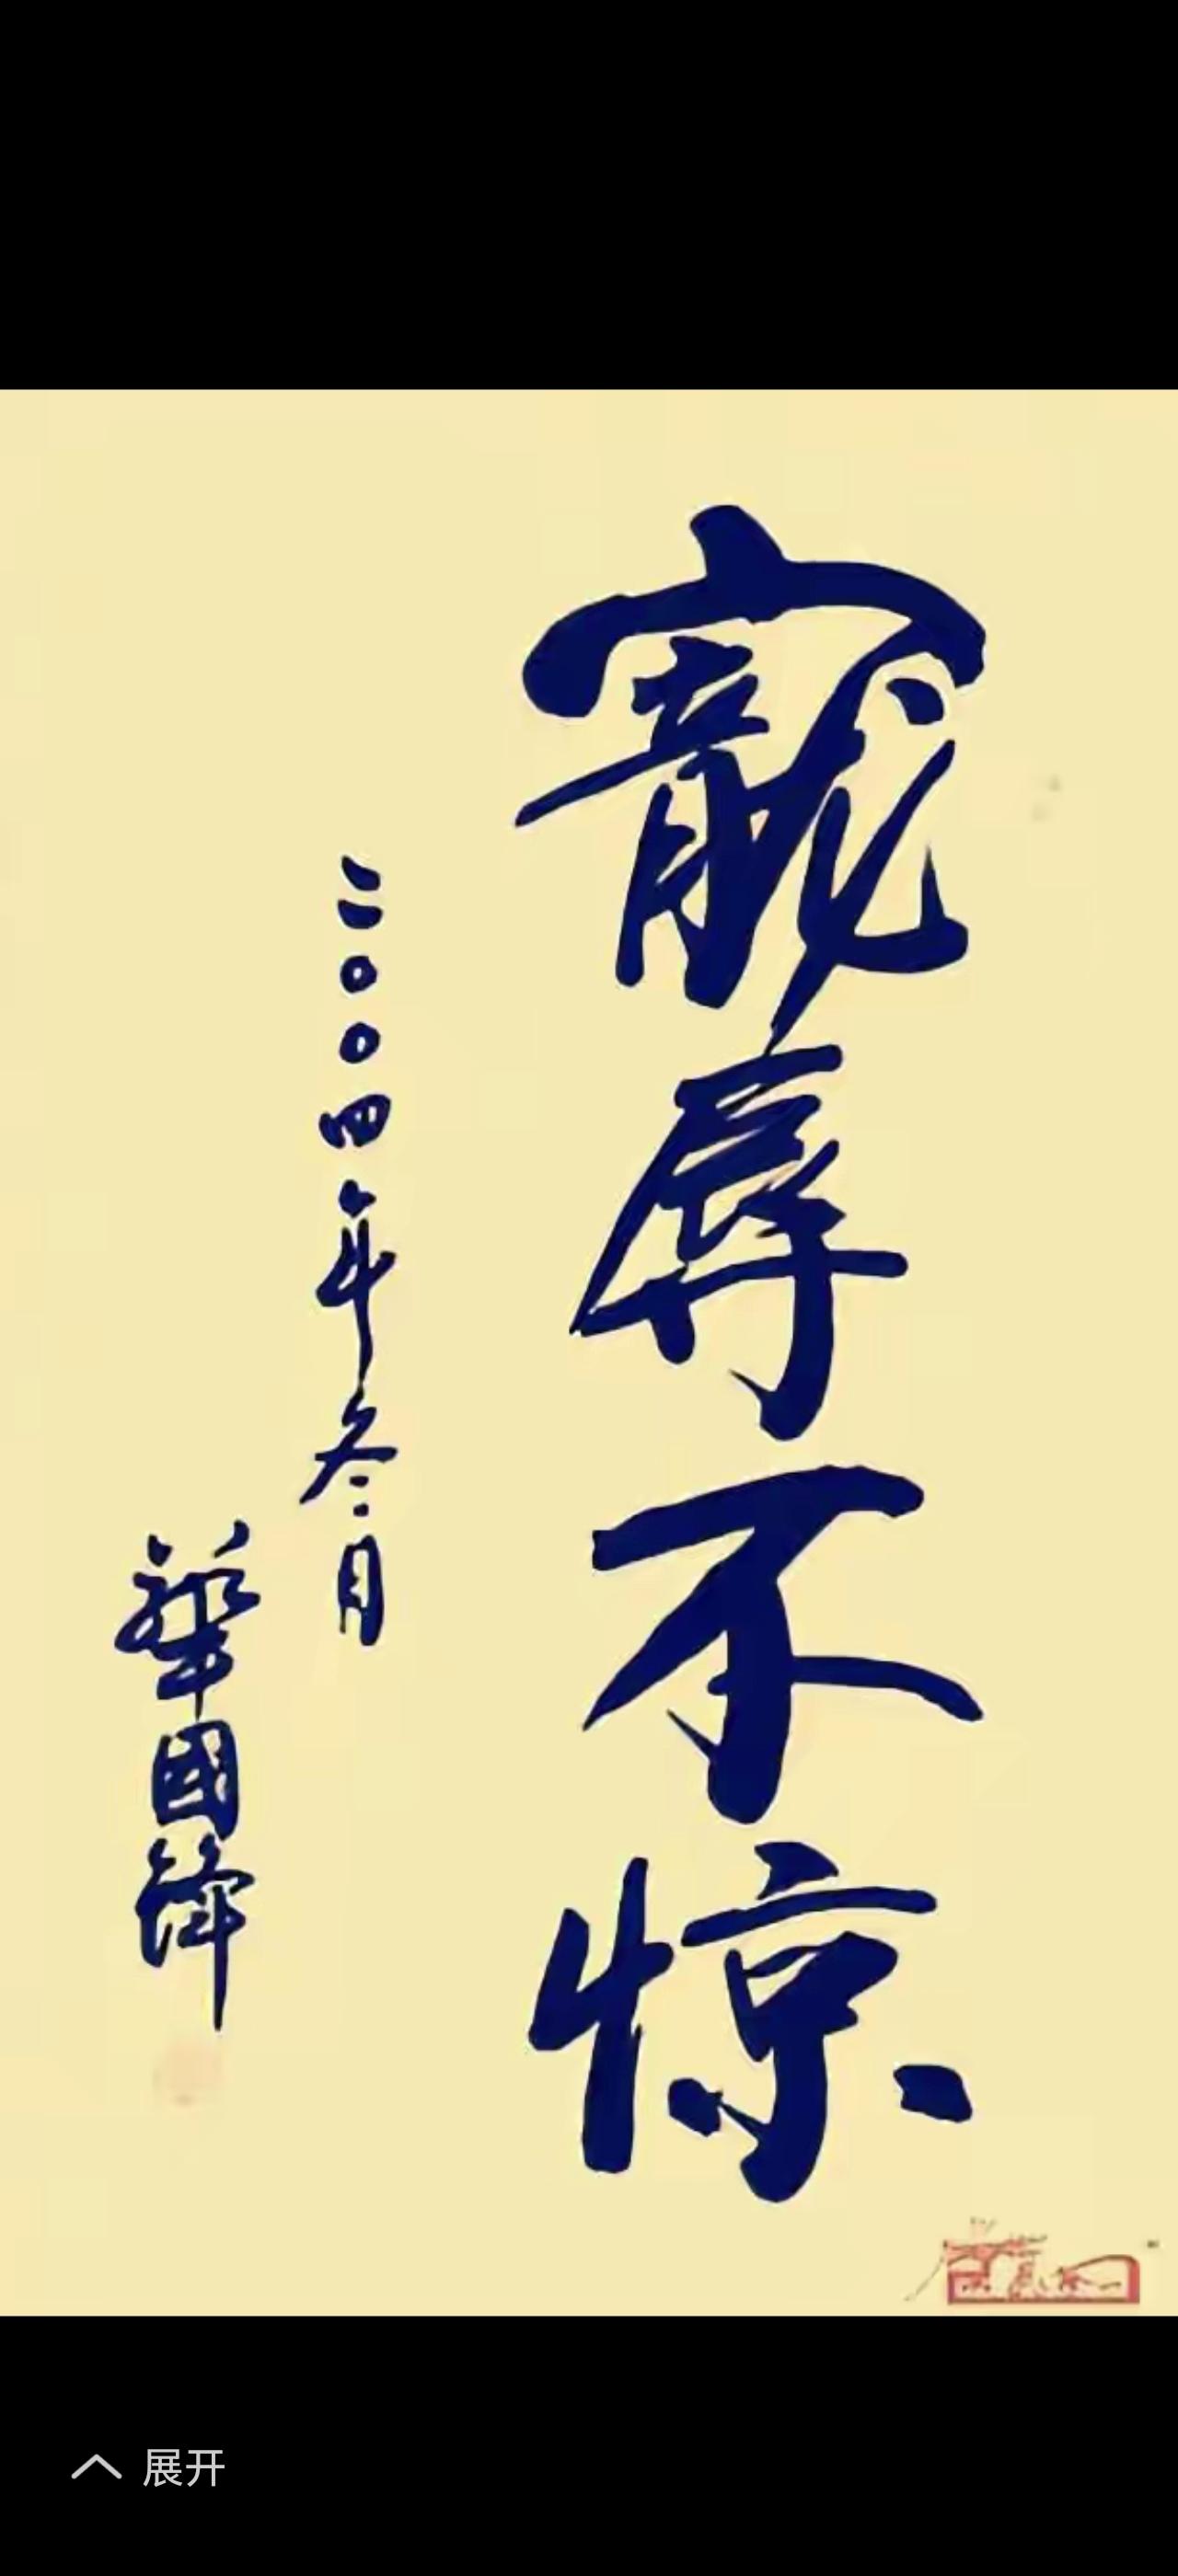 寵辱不惊
二〇〇四年冬月
華國鋒
展开